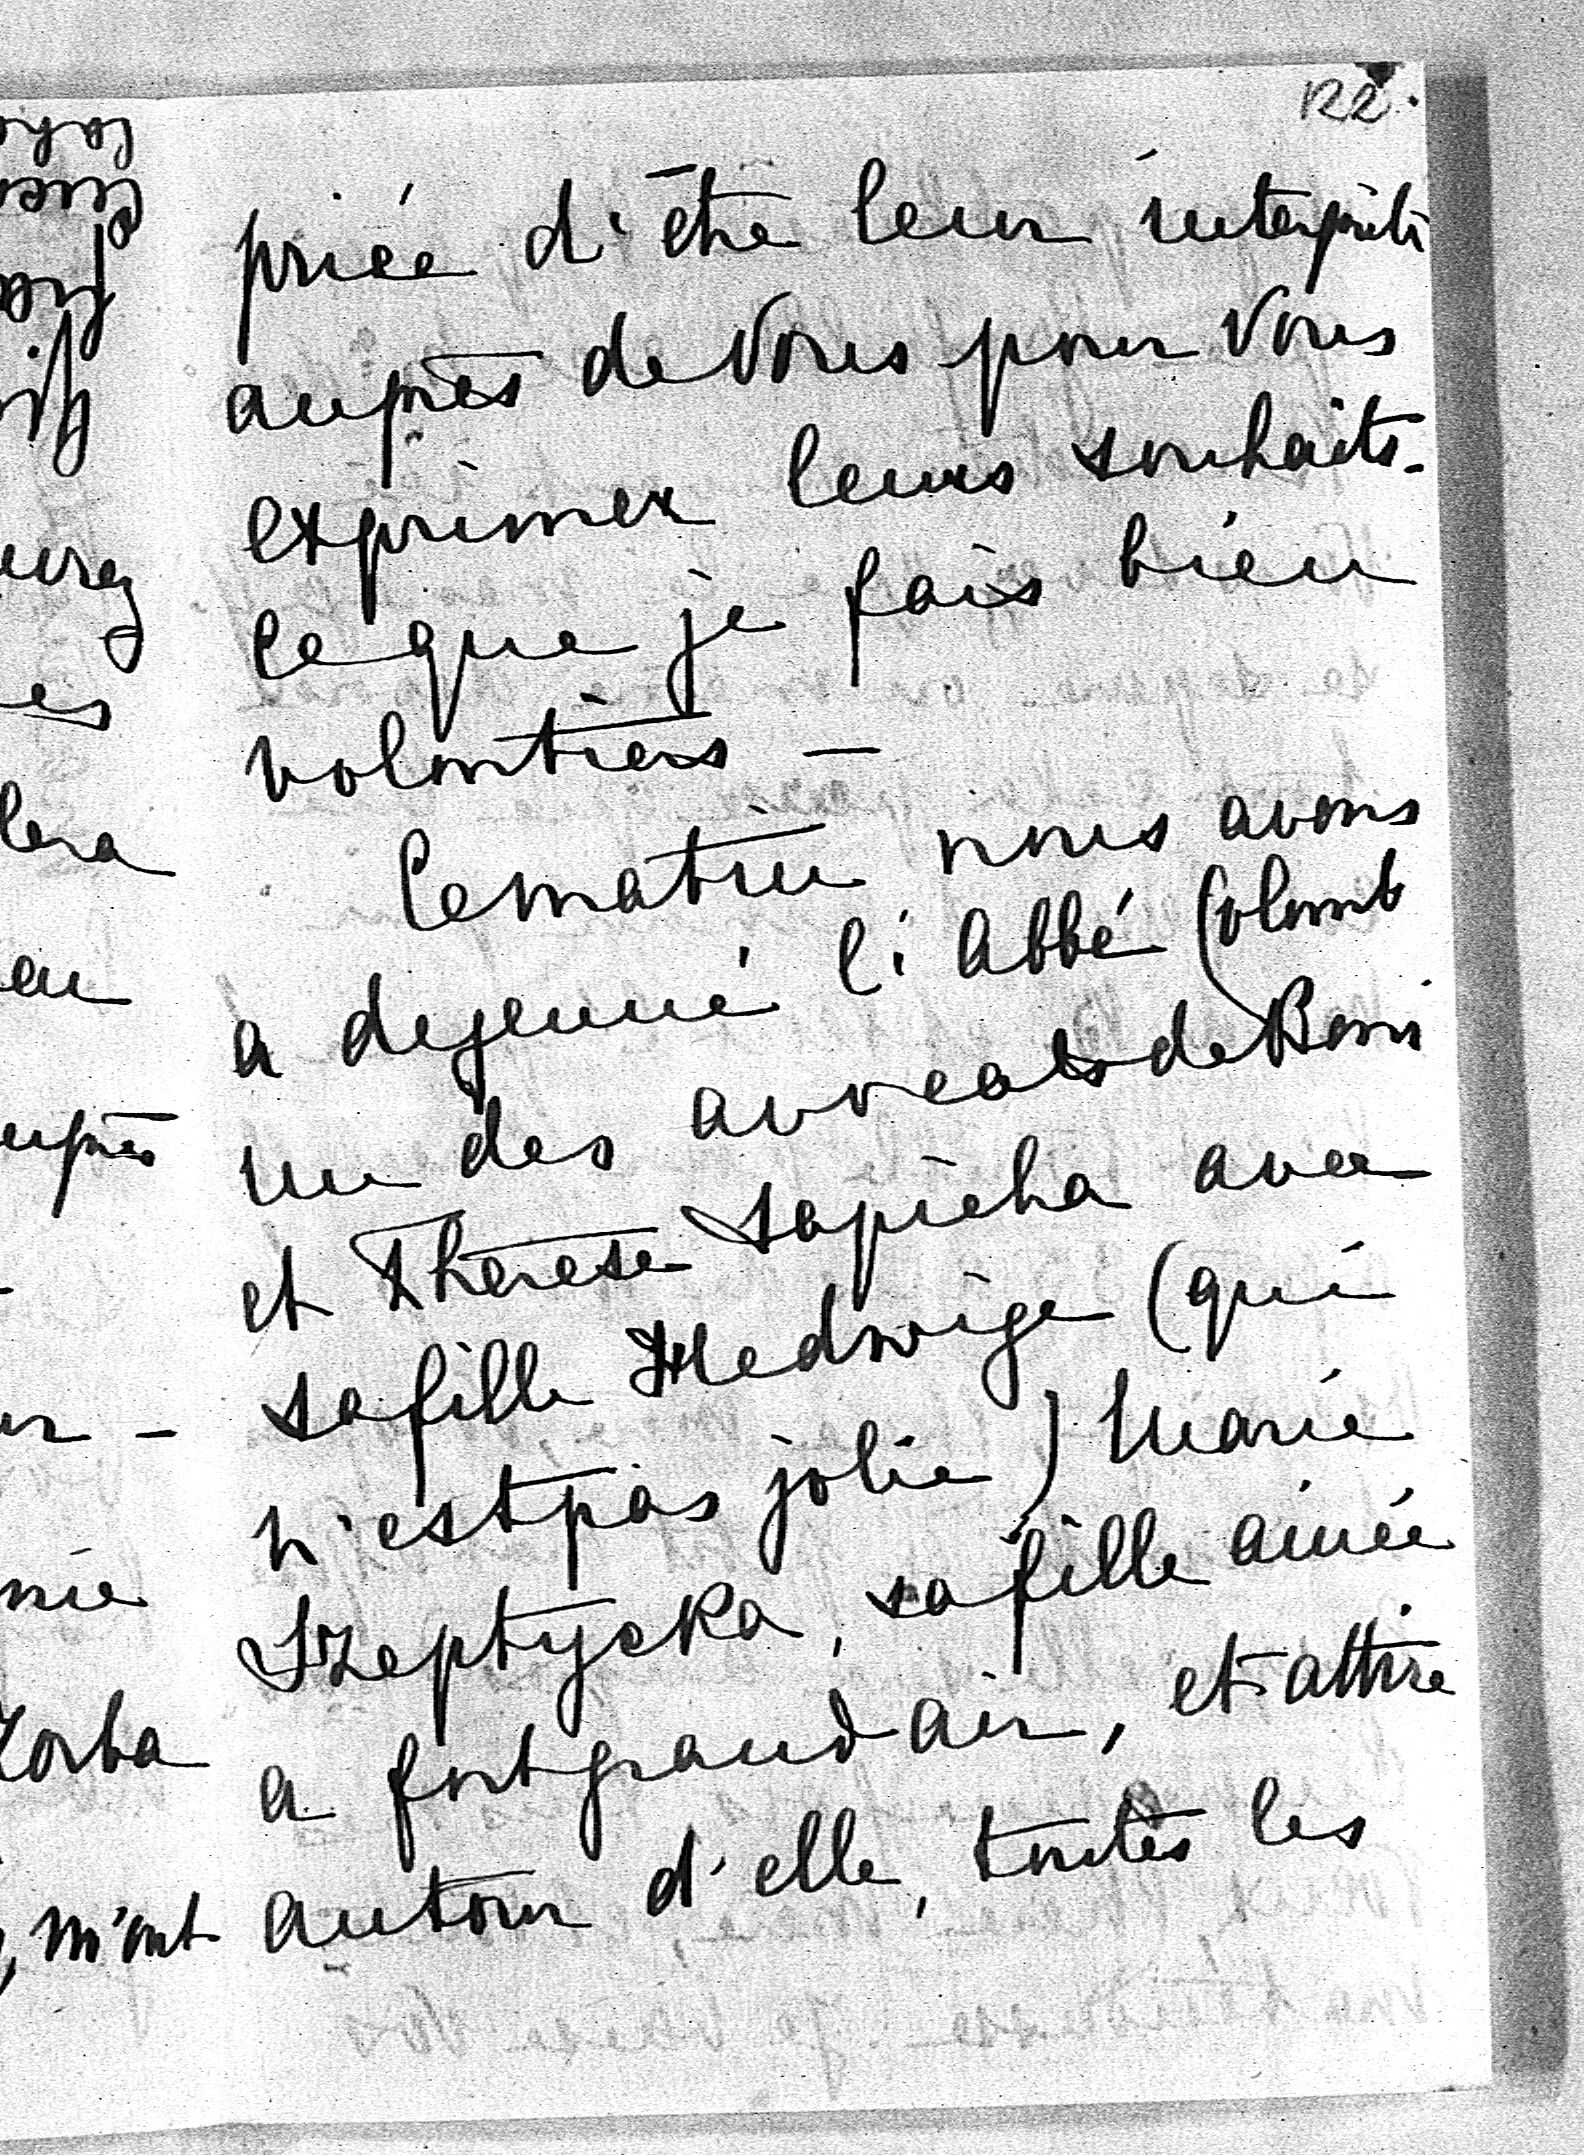 122.
priée d'être leur interprète
auprès de Vous pour Vous
exprimer leurs souhaits.
Ce que je fais bien
volontiers —
Ce matin nous avons
a dejeuné l'Abbé Colomb
un des avocats de Boris
et Therese Sapieha avec
sa fille Hedwige (qui
n'est pas jolie) Marie
Szeptycka, sa fille ainée
a fort grand air, et attire
autour d'elle, toutes les
es
lera
en
auprès
nie
Zorba
, m'ont